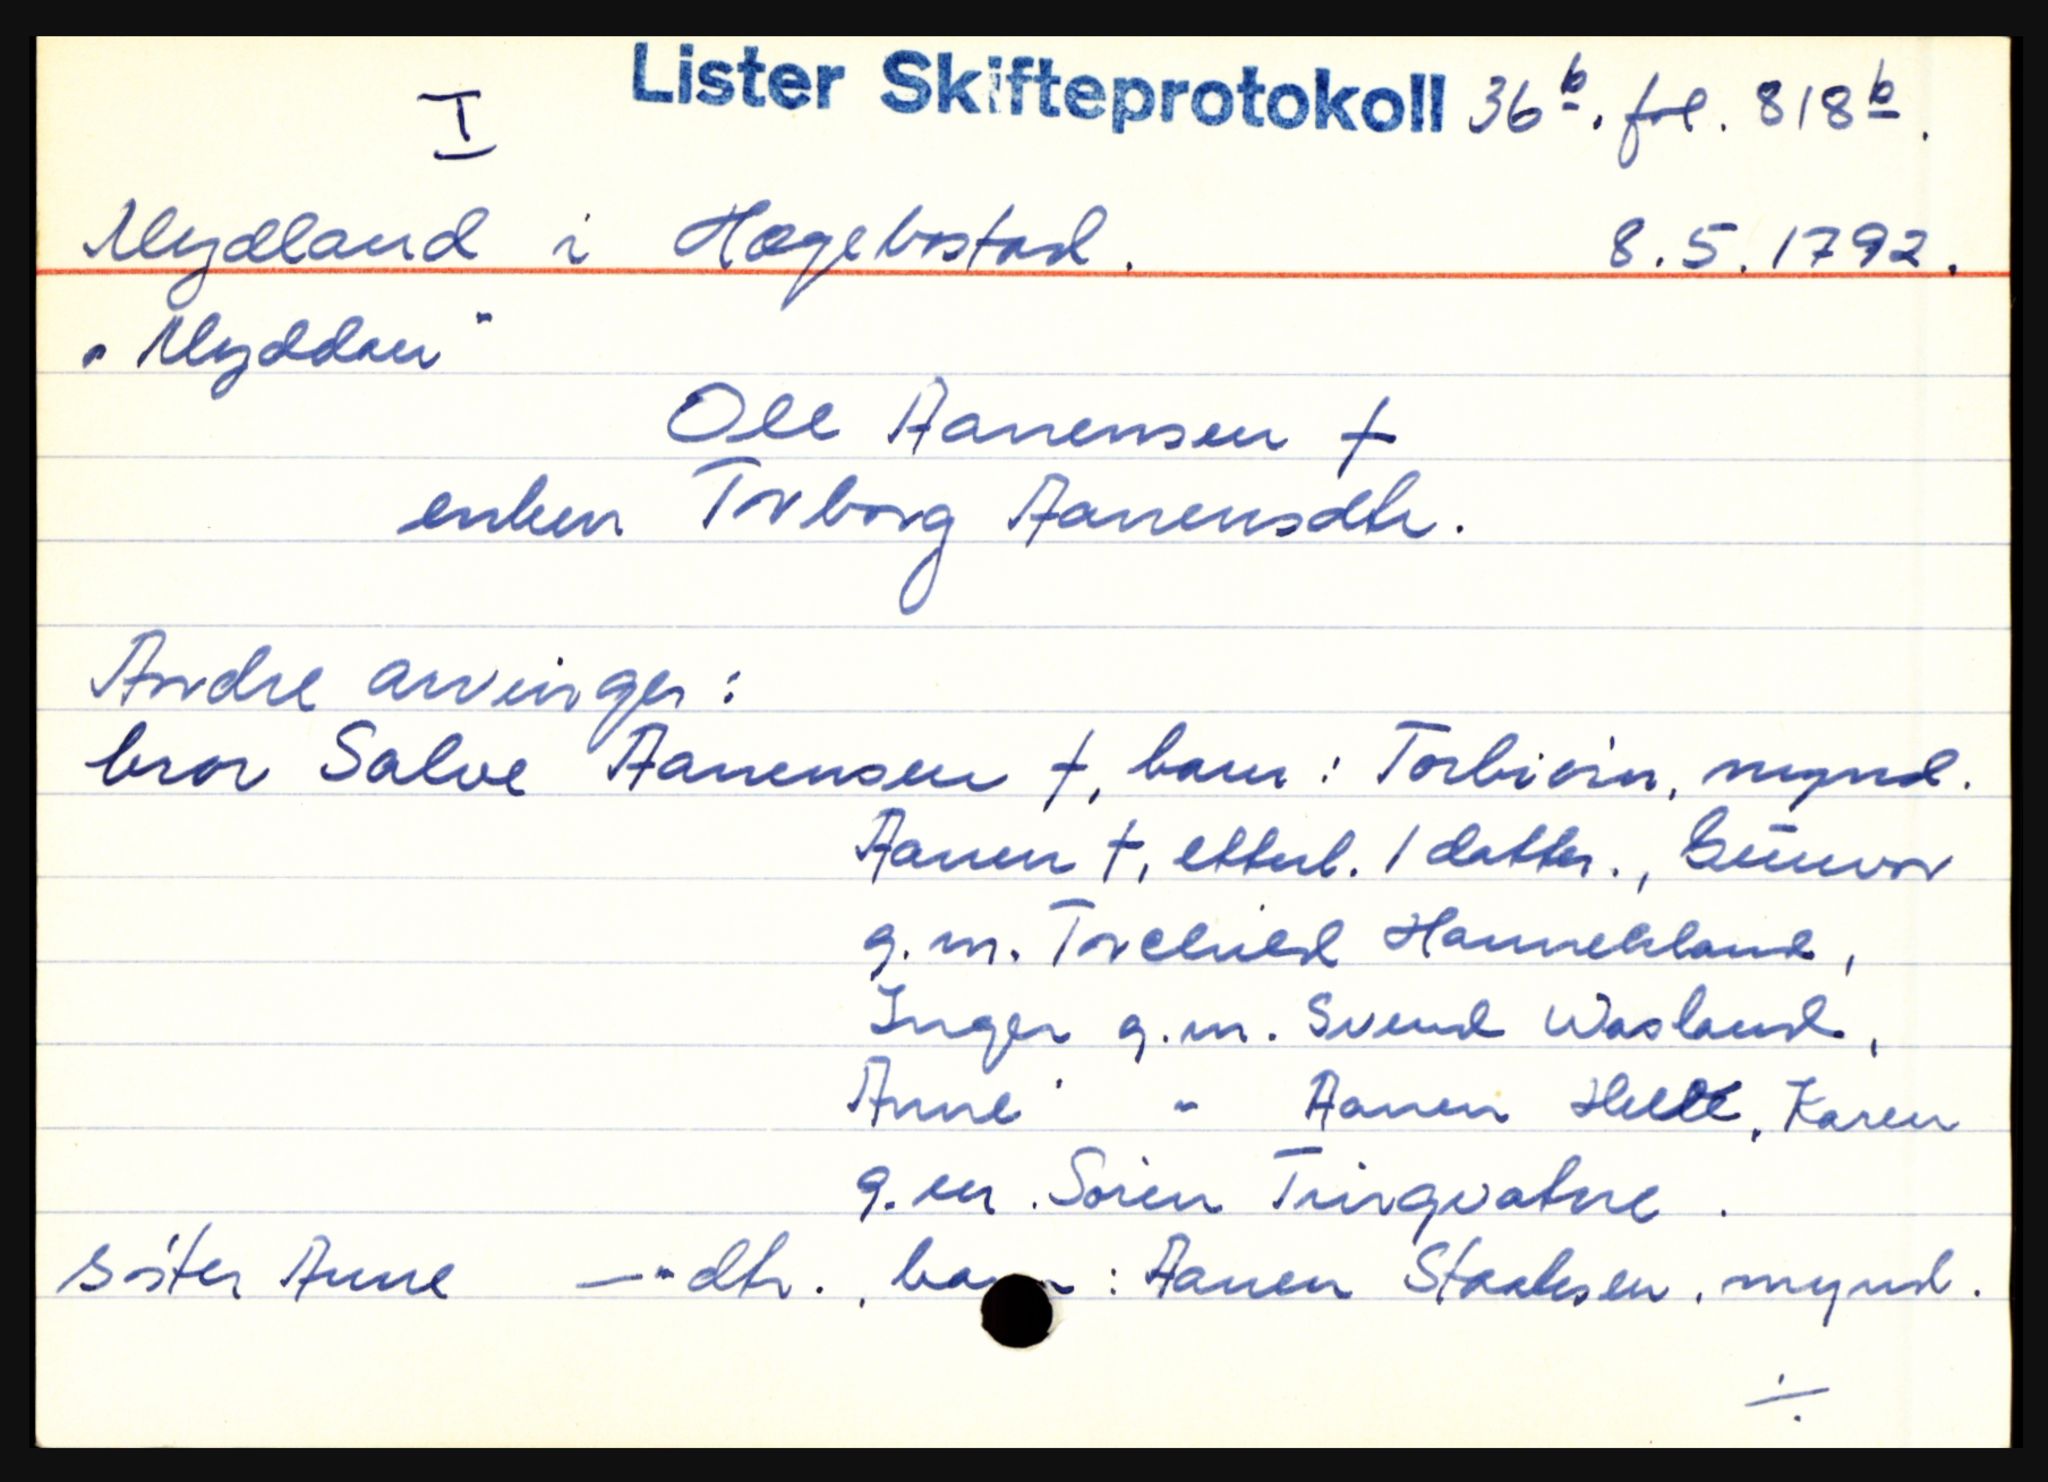 I Lister Skifteprotokoll 36b. fol. 818b.
Mydland i Hægebostad. 8.5.1792.
"Myddau"
Ole Aanensen †
enken Torborg Aanensdtr.
Andre arvinger:
bror Salve Aanensen †, barn: Torbiörn, mynd.
Aanen †, etterl. 1 datter., Gunvor
g.m. Torchild Hannekland,
Inger g.m. Svend Wasland,
Anne " Aanen Helle, Karen
g.m. Sören Tingvatne.
söster Anne —"— dtr., barn: Aanen Staalesen, mynd.
÷